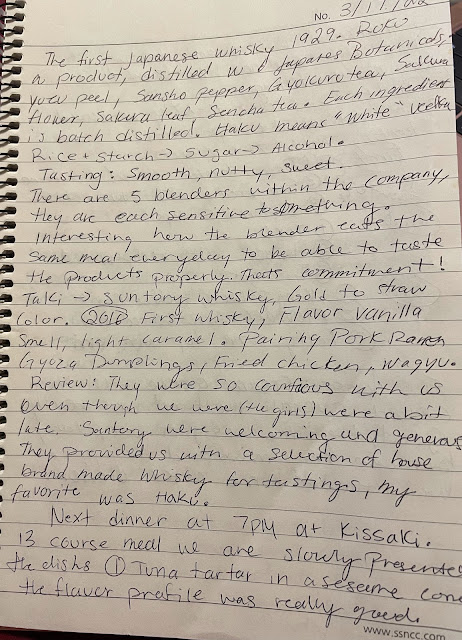 No. 3/17/22
The first Japanese whisky 1929. Roku
a product, distilled w 6 Japanes Botanicals,
yuzu peel, Sansho pepper, Gyokuro tea, Sakura
flower, Sakura leaf, Sencha tea. Each ingredient
is batch distilled. Haku means "White" Vodka
Rice + Starch → Sugar → Alcohol.
Tasting: Smooth, nutty, sweet.
There are 5 blenders within the company,
they are each sensitive to something.
Interesting how the blender eats the
same meal everyday to be able to taste
the products properly. Thats commitment!
Talki → Suntory whisky, Gold to straw
Color. 2018 First whisky, Flavor vanilla
Smell, light caramel. Pairing Pork Ramen
Gyoza Dumplings, Fried chicken, wagyu.
Review: They were so courteous with us
even though we were (the girls) were a bit
late. Suntory were welcoming and generous
They provided us with a selection of house
brand made whisky for tastings, my
favorite was Haku.
Next dinner at 7PM at Kissaki.
13 course meal we are slowly presented
the dishs ① Tuna tartar in a seseame cone
the flavor profile was really good.
www.ssncc.com